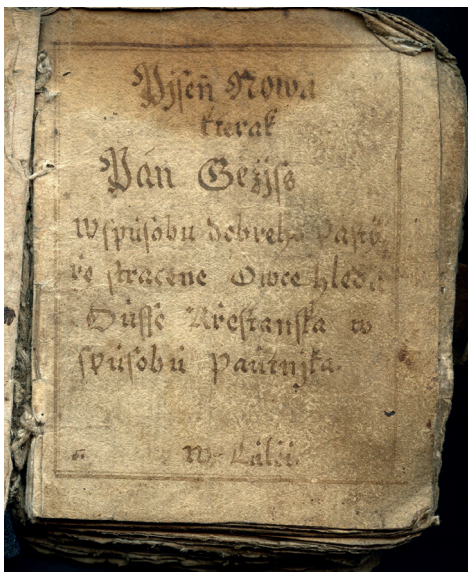 Pjseň Nowa
kterak
Pán Gežjss
W spúsobu dobreho Pastý
ře stracene Owce hleda
Dússe Křestanska w
spúsobú Paútnjka.